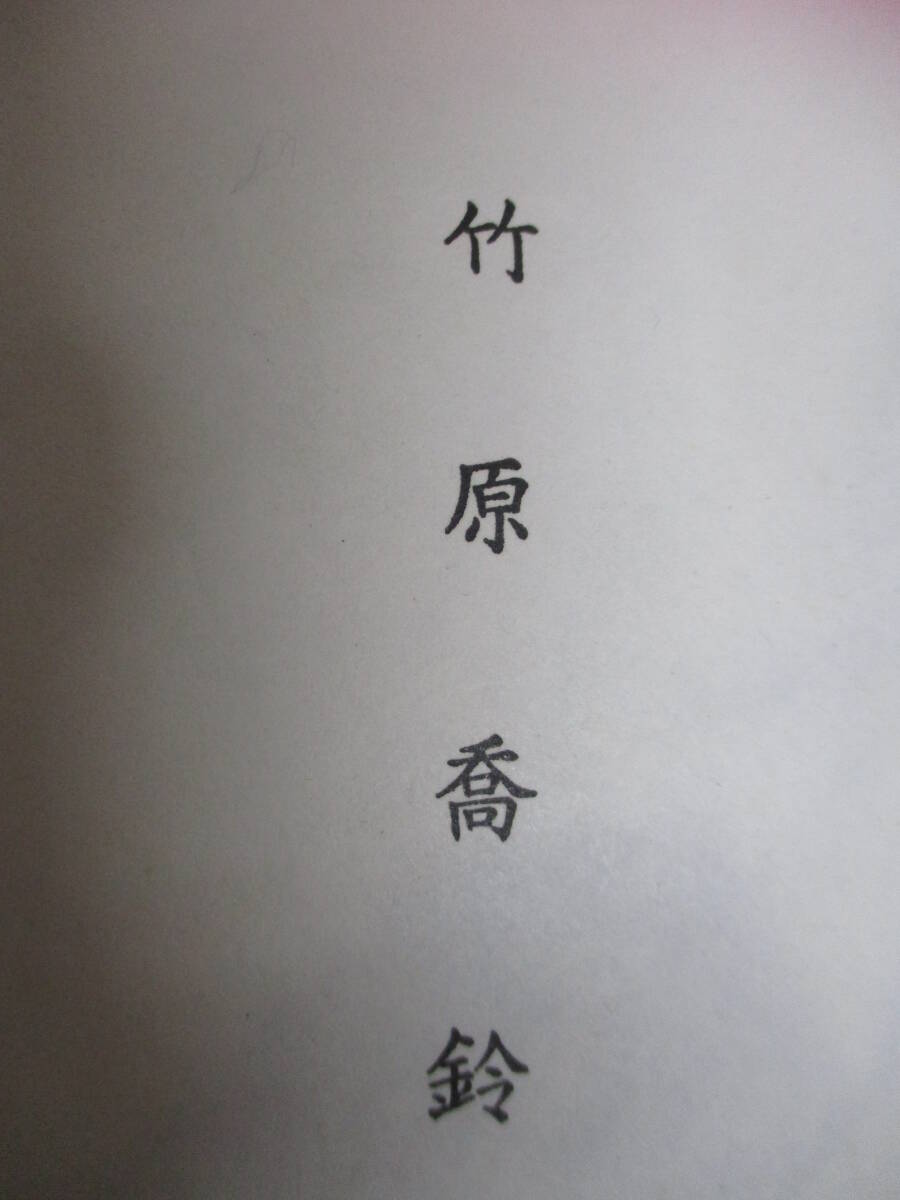 竹原喬鈴